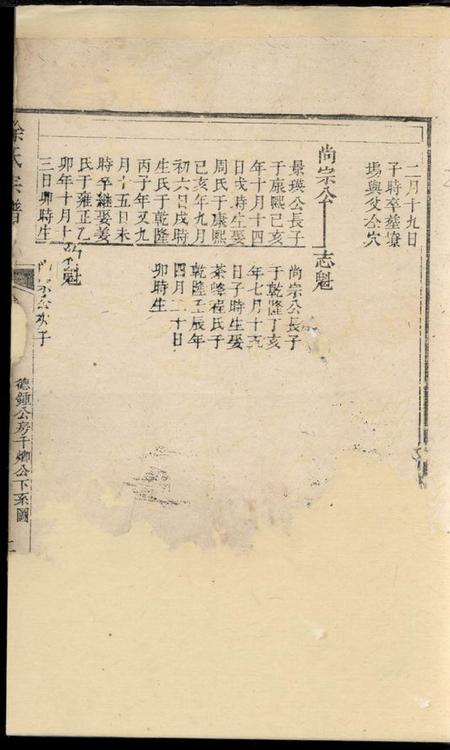 二月十九日
子時卒塟壕
塢與父仝穴
尚宗公
景瑛公長子
于康熙己亥
年十月十四
日戌時生娶
周氏于康熙
己亥年九月
初六日戌時
生氏于乾隆
丙子年又九
月十五日未
時卒繼娶姜
氏于雍正乙
卯年十月十
三日卯時生
志魁
尚宗公長子
于乾隆丁亥
年七月十五
日子時生娶
茶峰程氏子
乾隆壬辰年
四月二十日
卯時生
魁
公次子
徐氏宗譜
德鍾公房千卿公下系圖